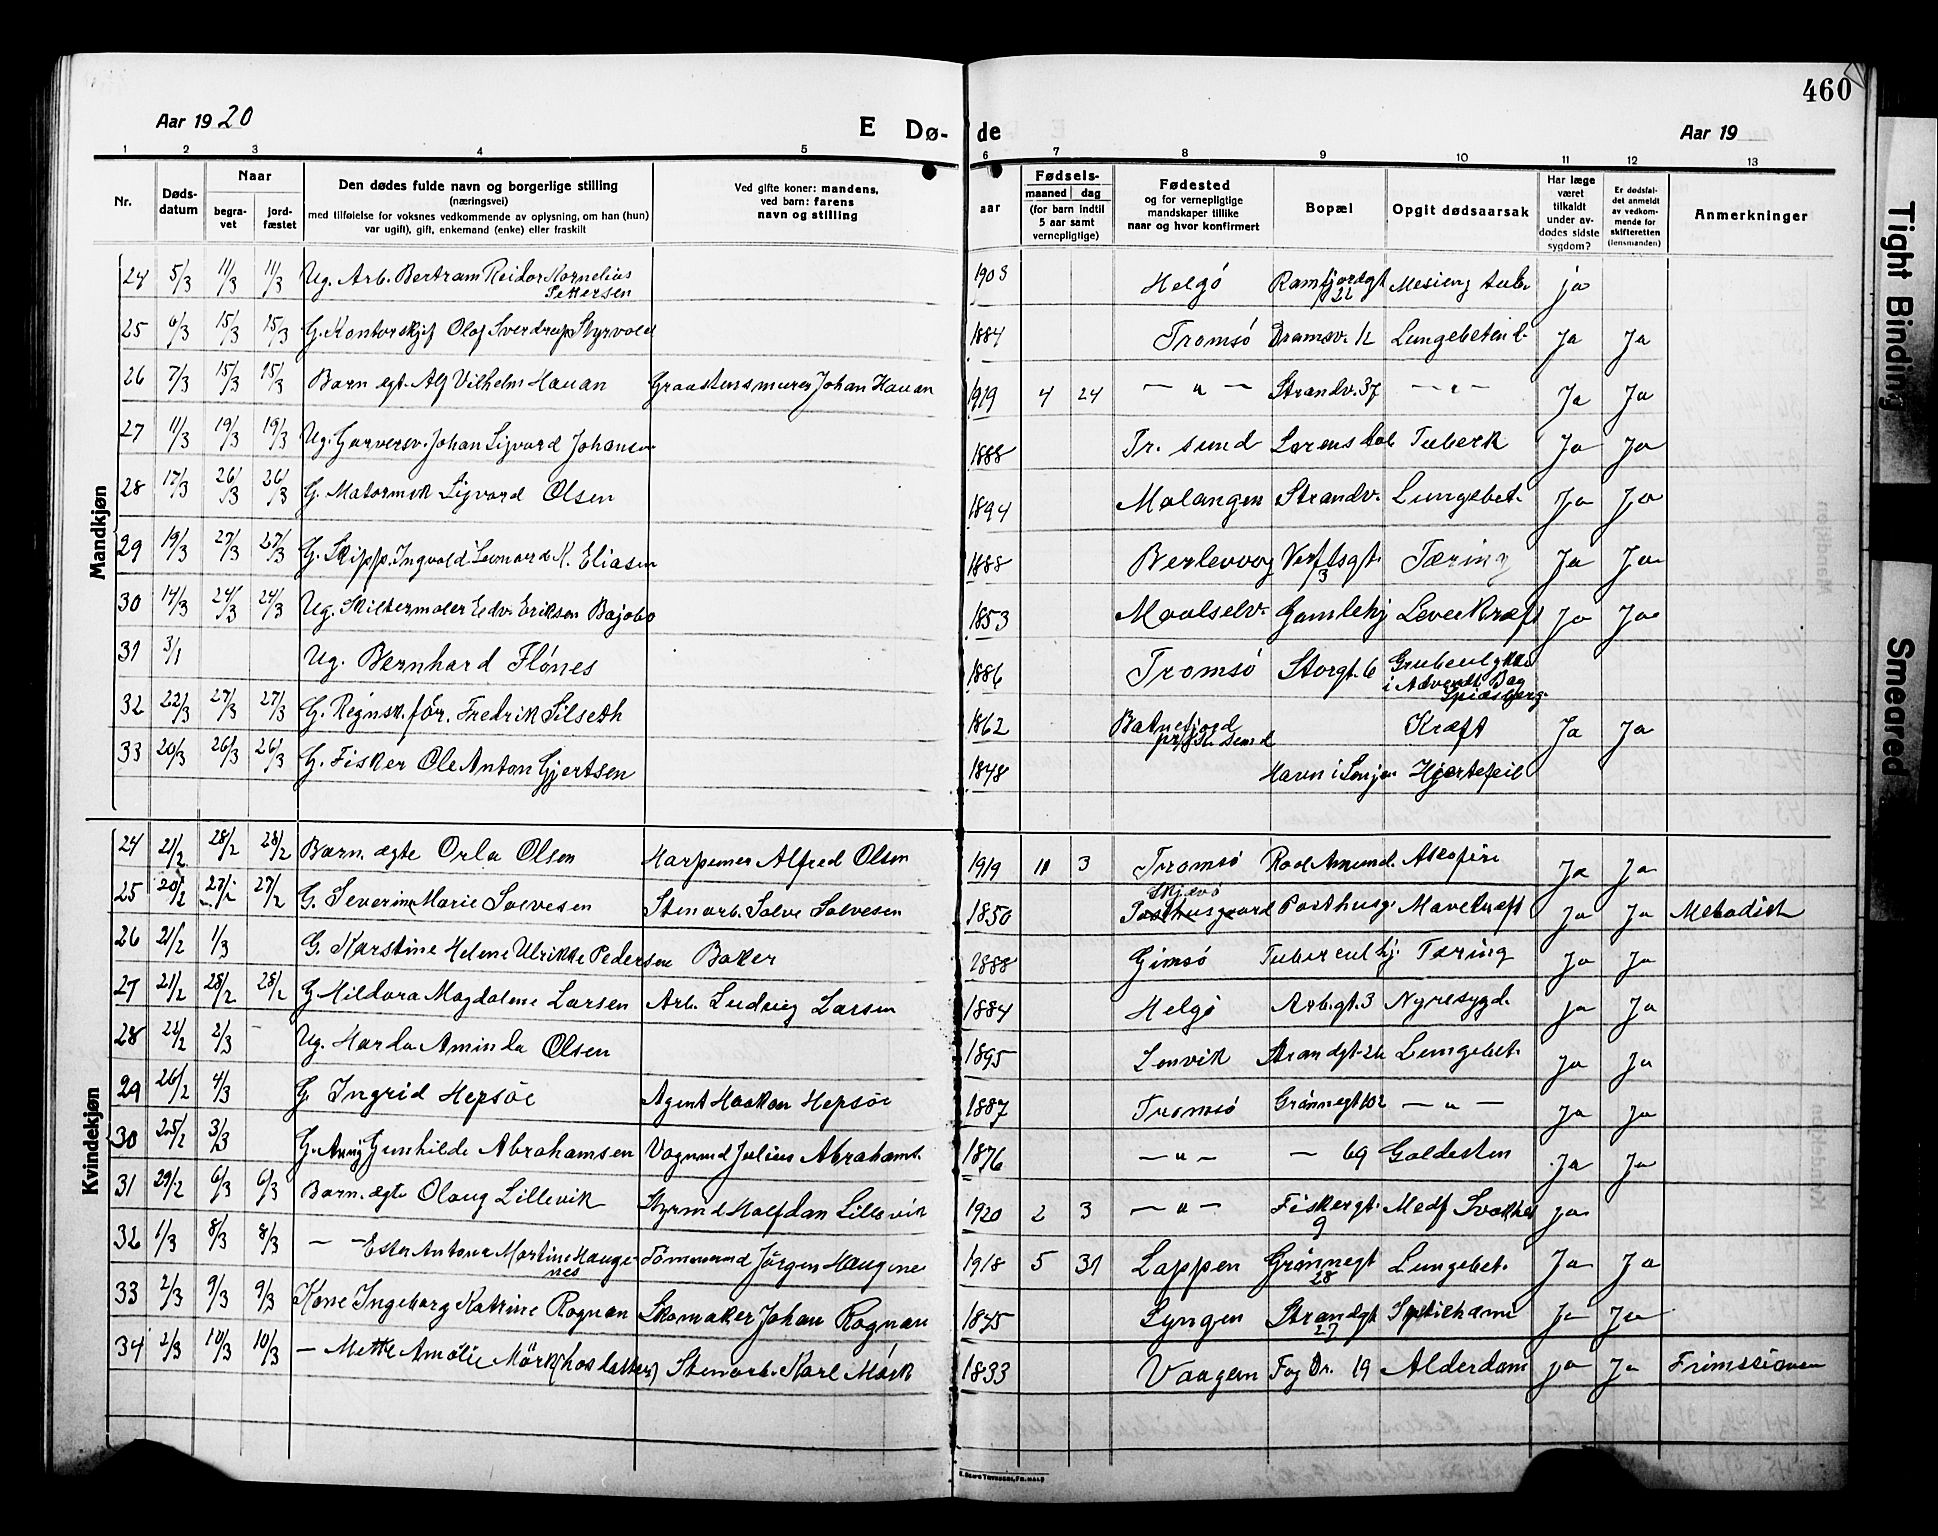 460
Aar 1920 E Dø- de Aar 19
1 2 3 4 5 6 7 8 9 10 11 12 13
Nr. Døds-datum Naar begra-vet jord-fæstet Den dødes fulde navn og borgerlige stilling (næringsvei) med tilføielse for voksnes vedkommende av oplysning, om han (hun) var ugift), gift, enkemand (enke) eller fraskilt Ved gifte koner: mandens, ved barn: farens navn og stilling aar Fødsels- maaned dag (for barn indtil 5 aar samt vernepligtige) Fødested og for vernepligtige mandskaper tillike naar og hvor konfirmert Bopæl Opgit dødsaarsak Har læge været tilkaldt under av-dødes sidste sygdom? Er dødsfal-det anmeldt av vedkom-mende for skifteretten (lensmanden) Anmerkninger
Mandkjøn
24 5/3 11/3 11/3 Ug. Arb. Bertram Reidar Kornelius Pettersen 1903 Helgö Ramfjordgt 22 ja
25 6/3 15/3 15/3 G. Kontorskjef Olaf Sverdrup Styrvold 1884 Tromsö Dramsv. 12 Lungebetend. Ja Ja
26 7/3 15/3 15/3 Barn egt. Alf Vilhelm Hauan Graastensmurer Johan Hauan 1919 4 24 — " — Strandv. 37 — " — Ja Ja
27 11/3 19/3 19/3 Ug. Garversv. Johan Sigvard Johansen 1888 Tr. sund Tuberk Ja Ja
28 17/3 26/3 26/3 G. Matormsk Sigvard Olsen 1894 Malangen Strandv. Lungebet. Ja Ja
29 19/3 27/3 27/3 G. Skipp. Ingvald Leonard K. Eliasen 1888 Berlevaag Verftsgt. 3 Tæring Ja Ja
30 14/3 24/3 24/3 Ug. Skiltermaler Edv. Eriksen Bajobo 1853 Maalselv. Gamlehj Leverkræft Ja Ja
31 3/1 Ug. Bernhard Flönes 1886 Tromsö Storgt. 6 Grubeulykke i Advendt Bay Spidsberg.
32 22/3 27/3 27/3 G. Regnsk.för. Fredrik Silseth 1862 Batnefjord pr. Kr. sund Kræft Ja Ja
33 20/3 26/3 26/3 G. Fisker Ole Anton Gjertsen 1848 Havn i Senjen Hjertefeil
Kvindekjøn
24 21/2 28/2 28/2 Barn. ægte Orla Olsen Harpuner Alfred Olsen 1919 11 3 Tromsö Roal Amund. Ja Ja
25 20/2 27/2 27/2 G. Severine Marie Solvesen Stenarb. Salve Solvesen 1850 Skjervö Posthusgaard Posthusg. Mavekræft Ja Ja Metodist
26 21/2 1/3 G. Karstine Helene Ulrikke Pedersen Baker 1888 Gimsö Tubercul hj. Tæring Ja Ja
27 21/2 28/2 28/2 G Hildora Magdalene Larsen Arb. Ludvig Larsen 1884 Helgö Arb.gt. 3 Nyresygd. ja Ja
28 22/2 2/3 — Ug. Harda Aminda Olsen 1895 Lenvik Strandgt. 26 Lungebet. ja Ja
29 26/2 4/3 G Ingrid Hepsöe Agent Haakon Hepsöe 1887 Tromsö Grönnegt 102 — " — Ja Ja
30 25/2 3/3 G. Anny Gunhilde Abrahamsen Vognmd Julius Abrahams. 1876 — " — — 69 Galdesten Ja Ja
31 29/2 6/3 6/3 Barn. ægte Olaug Lillevik Styrmd Halfdan Lillevik 1920 2 3 — " — Fiskergt. 9 Medf Svakhet ja
32 1/3 8/3 8/3 — — Ester Antona Martine Haugenes Tömmermd Jörgen Haugene 1918 5 31 Lappen Grönnegt 28 Lungebet. Ja Ja
33 2/3 9/3 9/3 Kone Ingeborg Katrine Rognan Skomaker Johan Rognan 1845 Lyngen Strandgt 27 Ja Ja
34 2/3 10/3 10/3 — Mette Amalie Mörk (hos datter) Stenarb. Karl Mörk 1833 Vaagen Fog Dr. 19 Alderdom ja Ja Frimissionen
E. Sem's Trykkeri, Fr.hald
Tight Binding
Smeared